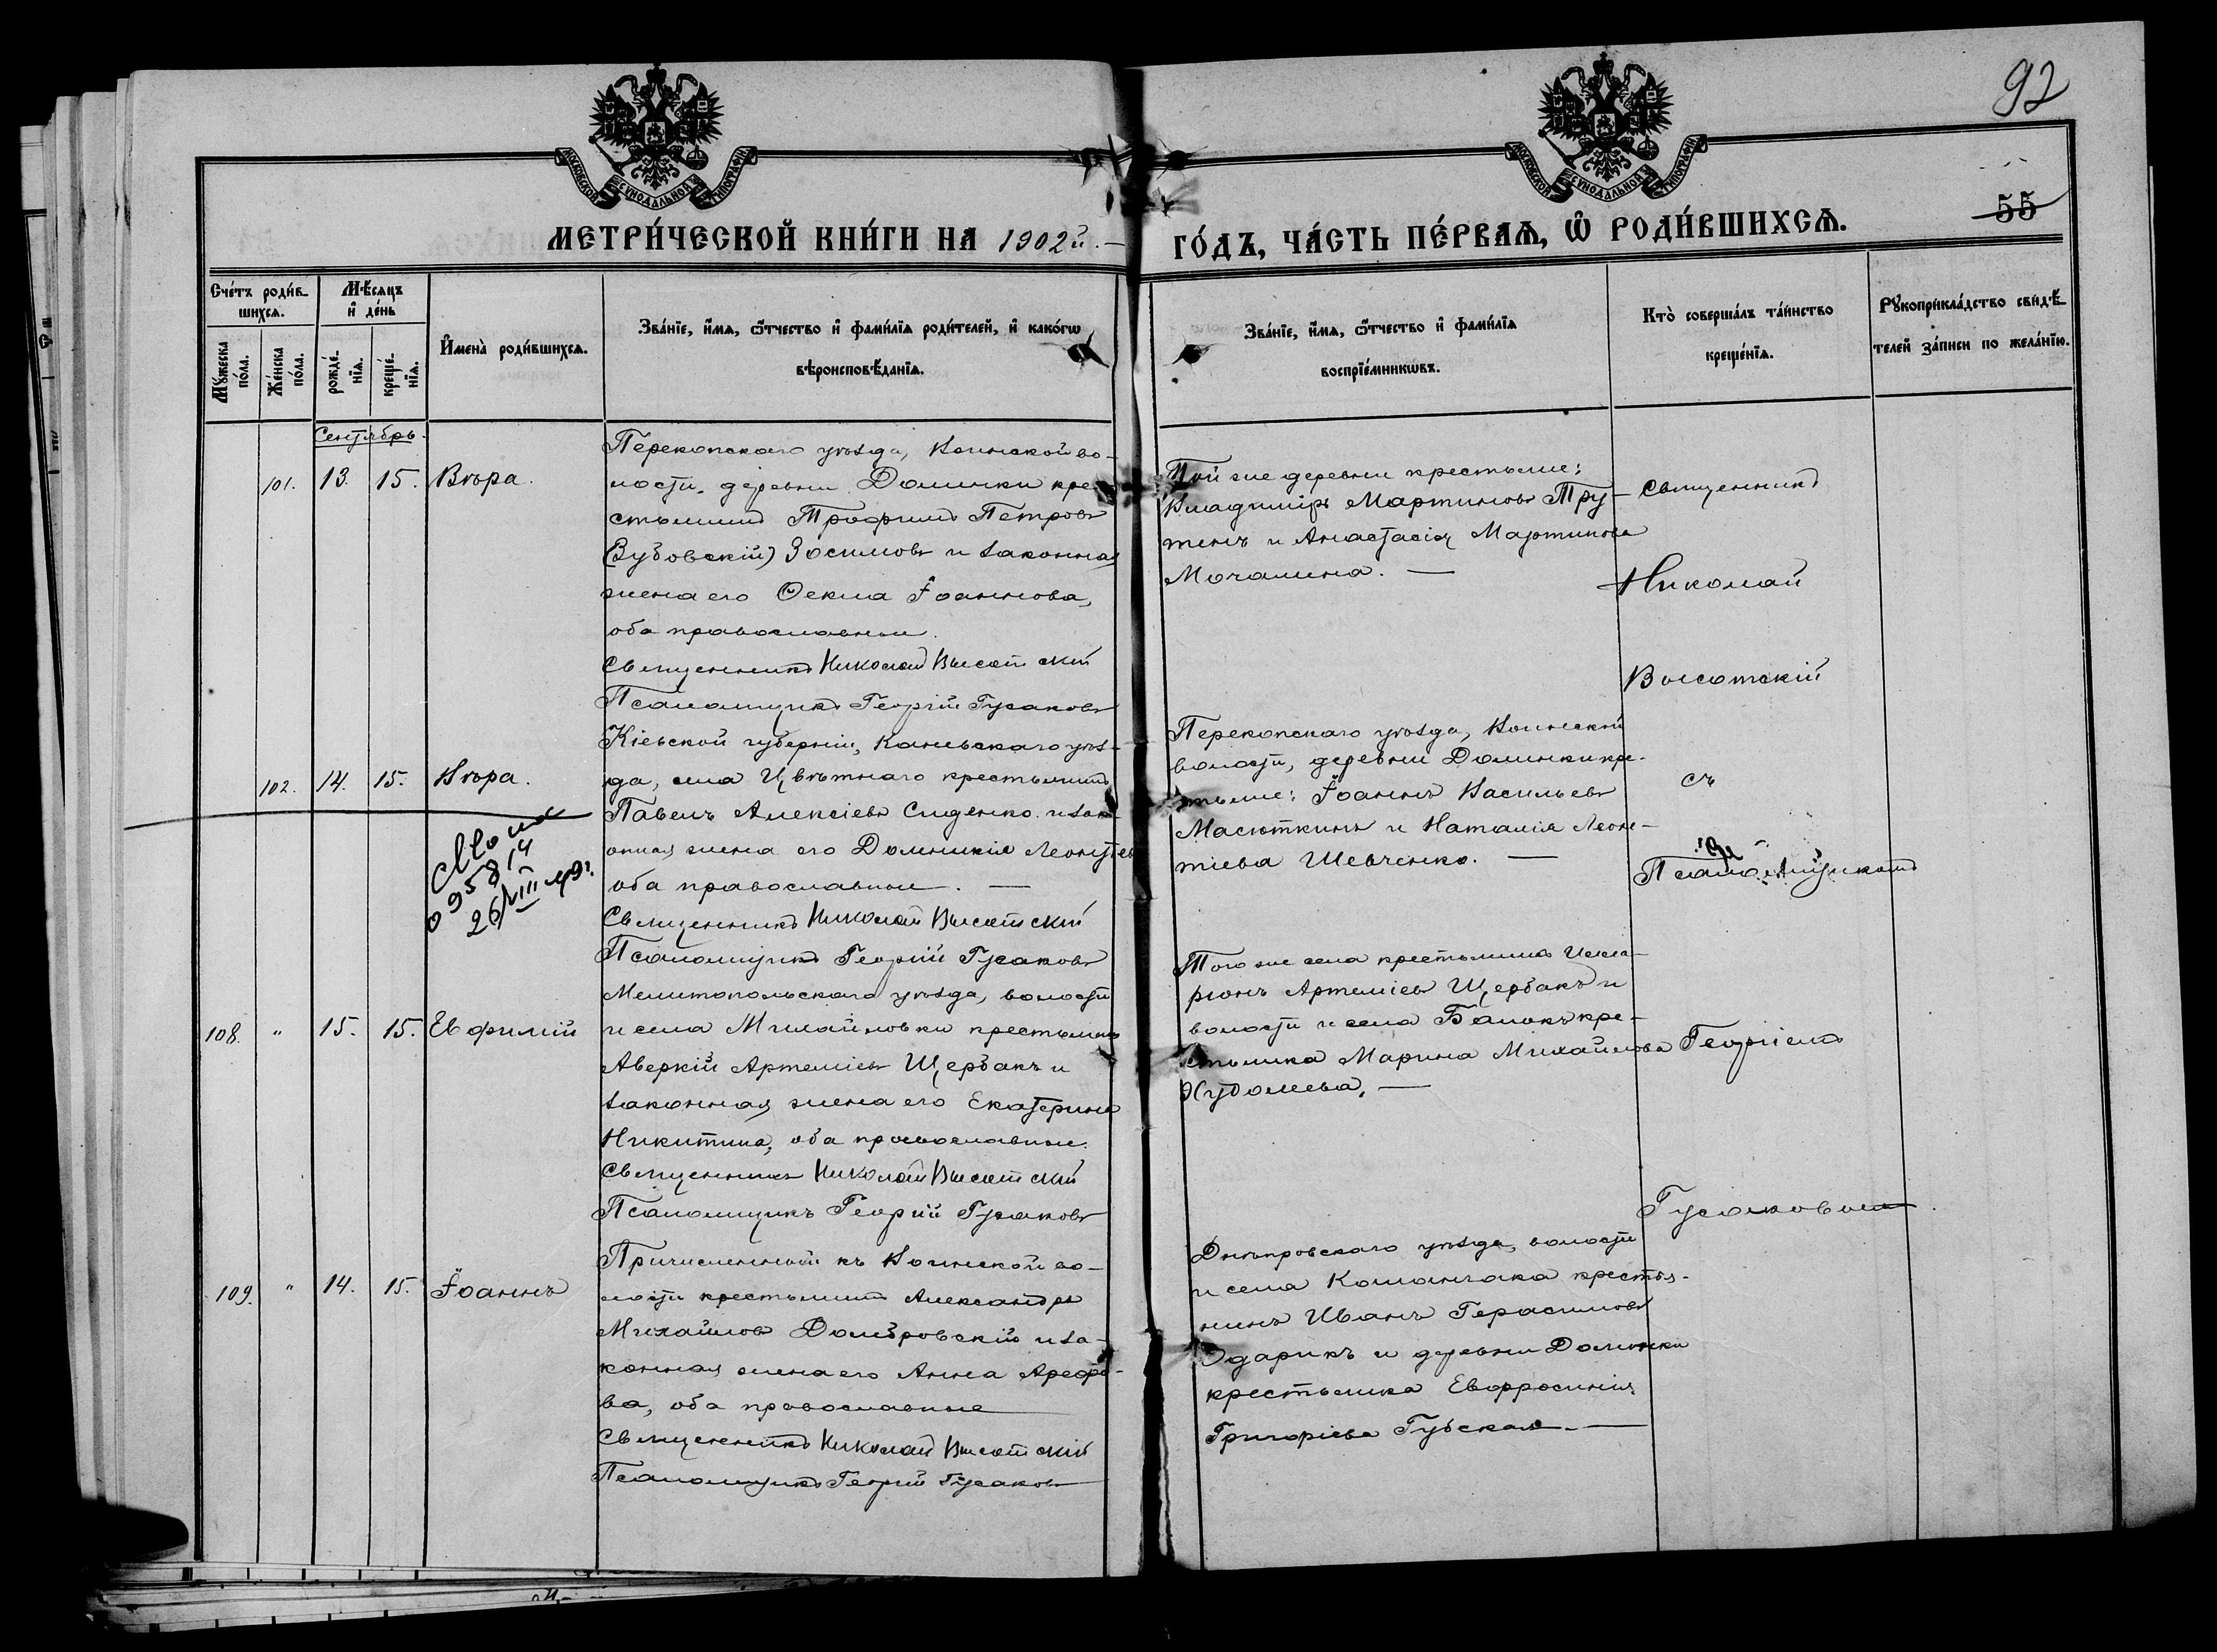 92
МОСКОВСКОЙ СУНОДАЛЬНОЙ ТИПОГРАФІИ
МОСКОВСКОЙ СУНОДАЛЬНОЙ ТИПОГРАФІИ
55
МЕТРИ́ЧЕСКОЙ КНИ́ГИ НА 1902й.—
ГО́ДЪ, ЧА́СТЬ ПЕ́РВАѦ, Ѽ РОДИ́ВШИХСѦ.
Сче́тъ роди́в-
шихсѧ.
Мꙋ́жеска
по́ла.
Же́нска
по́ла.
Мѣ́сѧцъ
и҆ де́нь
рожде́-
нїѧ.
креще́-
нїѧ.
И҆мена̀ роди́вшихсѧ.
Зва́нїе, и҆́мѧ, ѻ҆́тчество и҆ фами́лїѧ роди́телей, и҆ како́гѡ
вѣроисповѣ́данїѧ.
Зва́нїе, и҆́мѧ, ѻ҆́тчество и҆ фами́лїѧ
воспрїе́мникѡвъ.
Кто̀ соверша́лъ та́инство
креще́нїѧ.
Рꙋкоприкла́дство свидѣ́-
телей за́писи по жела́нїю.
Сентябрь.
101. 13. 15. Вѣра.
Перекопскаго уѣзда, Воинской во-
лости, деревни Долинки кре-
стьянинъ Трофимъ Петровъ
(Зубовскій) Зосимовъ и законная
жена его Ѳекла Іоаннова,
оба православные.
Священникъ Николай Высотскій
Псаломщикъ Георгій Гусаковъ
Той же деревни крестьяне:
Владиміръ Мартиновъ Тру-
тенъ и Анастасія Мартинова
Мочалина. —
Священникъ
Николай
Высотскій
съ
Псаломщикомъ
Георгіемъ
Гусаковымъ.
102. 14. 15. Вѣра.
Кіевской губерніи, Каневскаго уѣз-
да, села Цвѣтнаго крестьянинъ
Павелъ Алексіевъ Сиденко и зак-
онная жена его Домникія Леонтіев
оба православные. —
Священникъ Николай Высотскій
Псаломщикъ Георгій Гусаковъ
Перекопскаго уѣзда, Воинской
волости, деревни Долинки кре-
стьяне: Іоаннъ Васильевъ
Масюткинъ и Наталія Леон-
тіева Шевченко. —
095814
26/VIII
108. " 15. 15. Евфимій
Мелитопольскаго уѣзда, волости
и села Михайловки крестьянинъ
Аверкій Артеміевъ Щербакъ и
законная жена его Екатерина
Никитина, оба православные.
Священникъ Николай Высотскій
Псаломщикъ Георгій Гусаковъ
Того же села крестьянинъ Илла-
ріонъ Артеміевъ Щербакъ и
волости и села Балокъ кре-
стьянка Марина Михайлова
Худолеева. —
109. " 14. 15. Іоаннъ
Причисленный къ Воинской во-
лости крестьянинъ Александръ
Михайловъ Домбровскій и за-
конная жена его Анна Арефо-
ва, оба православные
Священникъ Николай Высотскій
Псаломщикъ Георгій Гусаковъ
Днѣпровскаго уѣзда, волости
и села Каланчака крестья-
нинъ Иванъ Герасимовъ
Одарикъ и деревни Долинки
крестьянка Евфросинія
Григоріева Губская. —